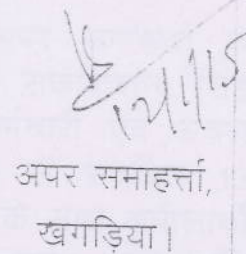 अपर समाहर्त्ता,
खगड़िया।